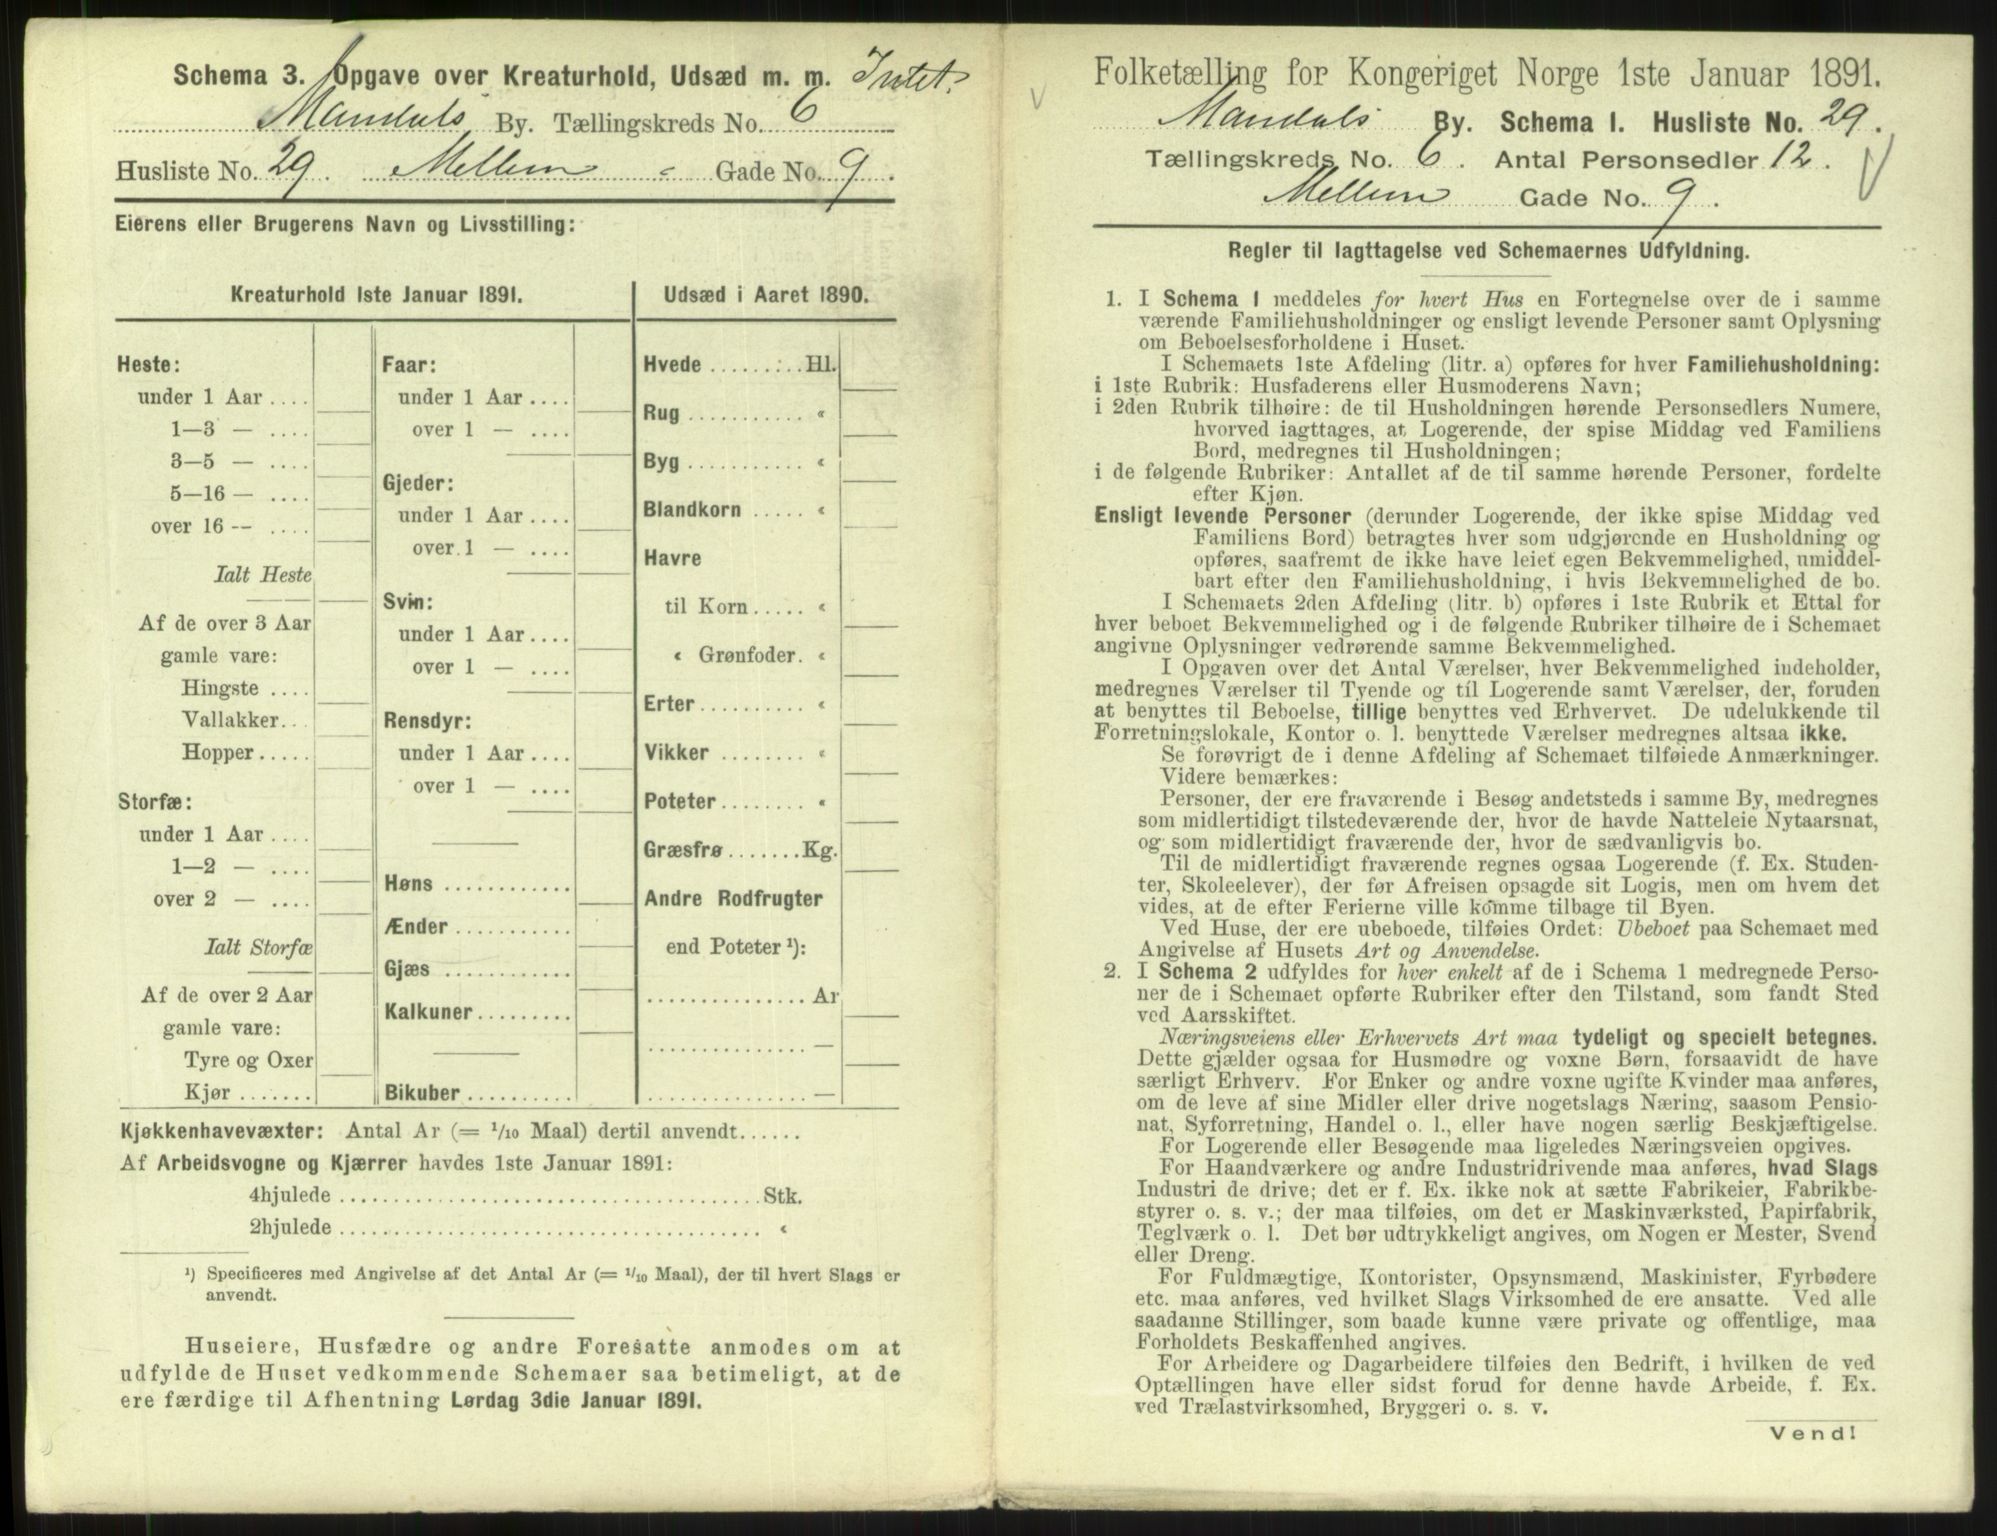 Schema 3. Opgave over Kreaturhold, Udsæd m. m. Intet.
Mandals By. Tællingskreds No. 6
Husliste No. 29. Mellem - Gade No. 9.
Eierens eller Brugerens Navn og Livsstilling:
Kreaturhold 1ste Januar 1891.
Heste:
under 1 Aar ....
1—3 — ....
3—5 — ....
5—16 — ....
over 16 -- ....
Ialt Heste
Af de over 3 Aar
gamle vare:
Hingste ....
Vallakker...
Hopper.....
Storfæ:
under 1 Aar ....
1—2 — ....
over 2 — ....
Ialt Storfæ
Af de over 2 Aar
gamle vare:
Tyre og Oxer
Kjør .......
Faar:
under 1 Aar ....
over 1 — ....
Gjeder:
under 1 Aar ....
over 1 — ....
Svin:
under 1 Aar ....
over 1 — ....
Rensdyr:
under 1 Aar ....
over 1 — ....
Høns ............
Ænder ...........
Gjæs ............
Kalkuner.........
Bikuber ..........
Udsæd i Aaret 1890.
Hvede ........ Hl.
Rug .......... «
Byg .......... «
Blandkorn ..... «
Havre
til Korn..... «
« Grønfoder. «
Erter......... «
Vikker ........ «
Poteter........ «
Græsfrø ....... Kg.
Andre Rodfrugter
end Poteter ¹):
............... Ar
............... —
............... —
Kjøkkenhavevæxter: Antal Ar (= 1/10 Maal) dertil anvendt......
Af Arbeidsvogne og Kjærrer havdes 1ste Januar 1891:
4hjulede ....................................... Stk.
2hjulede ....................................... «
¹) Specificeres med Angivelse af det Antal Ar (= 1/10 Maal), der til hvert Slags er
anvendt.
Huseiere, Husfædre og andre Foresatte anmodes om at
udfylde de Huset vedkommende Schemaer saa betimeligt, at de
ere færdige til Afhentning Lørdag 3die Januar 1891.
Folketælling for Kongeriget Norge 1ste Januar 1891.
Mandals By. Schema I. Husliste No. 29.
Tællingskreds No. 6. Antal Personsedler 12.
Mellem Gade No. 9.
Regler til Iagttagelse ved Schemaernes Udfyldning.
1. I Schema I meddeles for hvert Hus en Fortegnelse over de i samme
værende Familiehusholdninger og ensligt levende Personer samt Oplysning
om Beboelsesforholdene i Huset.
I Schemaets 1ste Afdeling (litr. a) opføres for hver Familiehusholdning:
i 1ste Rubrik: Husfaderens eller Husmoderens Navn;
i 2den Rubrik tilhøire: de til Husholdningen hørende Personsedlers Numere,
hvorved iagttages, at Logerende, der spise Middag ved Familiens
Bord, medregnes til Husholdningen;
i de følgende Rubriker: Antallet af de til samme hørende Personer, fordelte
efter Kjøn.
Ensligt levende Personer (derunder Logerende, der ikke spise Middag ved
Familiens Bord) betragtes hver som udgjørende en Husholdning og
opføres, saafremt de ikke have leiet egen Bekvemmelighed, umiddel-
bart efter den Familiehusholdning, i hvis Bekvemmelighed de bo.
I Schemaets 2den Afdeling (litr. b) opføres i 1ste Rubrik et Ettal for
hver beboet Bekvemmelighed og i de følgende Rubriker tilhøire de i Schemaet
angivne Oplysninger vedrørende samme Bekvemmelighed.
I Opgaven over det Antal Værelser, hver Bekvemmelighed indeholder,
medregnes Værelser til Tyende og til Logerende samt Værelser, der, foruden
at benyttes til Beboelse, tillige benyttes ved Erhvervet. De udelukkende til
Forretningslokale, Kontor o. l. benyttede Værelser medregnes altsaa ikke.
Se forøvrigt de i denne Afdeling af Schemaet tilføiede Anmærkninger.
Videre bemærkes:
Personer, der ere fraværende i Besøg andetsteds i samme By, medregnes
som midlertidigt tilstedeværende der, hvor de havde Natteleie Nytaarsnat,
og som midlertidigt fraværende der, hvor de sædvanligvis bo.
Til de midlertidigt fraværende regnes ogsaa Logerende (f. Ex. Studen-
ter, Skoleelever), der før Afreisen opsagde sit Logis, men om hvem det
vides, at de efter Ferierne ville komme tilbage til Byen.
Ved Huse, der ere ubeboede, tilføies Ordet: Ubeboet paa Schemaet med
Angivelse af Husets Art og Anvendelse.
2. I Schema 2 udfyldes for hver enkelt af de i Schema 1 medregnede Perso-
ner de i Schemaet opførte Rubriker efter den Tilstand, som fandt Sted
ved Aarsskiftet.
Næringsveiens eller Erhvervets Art maa tydeligt og specielt betegnes.
Dette gjælder ogsaa for Husmødre og voxne Børn, forsaavidt de have
særligt Erhverv. For Enker og andre voxne ugifte Kvinder maa anføres,
om de leve af sine Midler eller drive nogetslags Næring, saasom Pensio-
nat, Syforretning, Handel o. l., eller have nogen særlig Beskjæftigelse.
For Logerende eller Besøgende maa ligeledes Næringsveien opgives.
For Haandværkere og andre Industridrivende maa anføres, hvad Slags
Industri de drive; det er f. Ex. ikke nok at sætte Fabrikeier, Fabrikbe-
styrer o. s. v.; der maa tilføies, om det er Maskinværksted, Papirfabrik,
Teglværk o. l. Det bør udtrykkeligt angives, om Nogen er Mester, Svend
eller Dreng.
For Fuldmægtige, Kontorister, Opsynsmænd, Maskinister, Fyrbødere
etc. maa anføres, ved hvilket Slags Virksomhed de ere ansatte. Ved alle
saadanne Stillinger, som baade kunne være private og offentlige, maa
Forholdets Beskaffenhed angives.
For Arbeidere og Dagarbeidere tilføies den Bedrift, i hvilken de ved
Optællingen have eller sidst forud for denne havde Arbeide, f. Ex.
ved Trælastvirksomhed, Bryggeri o. s. v.
Vend!